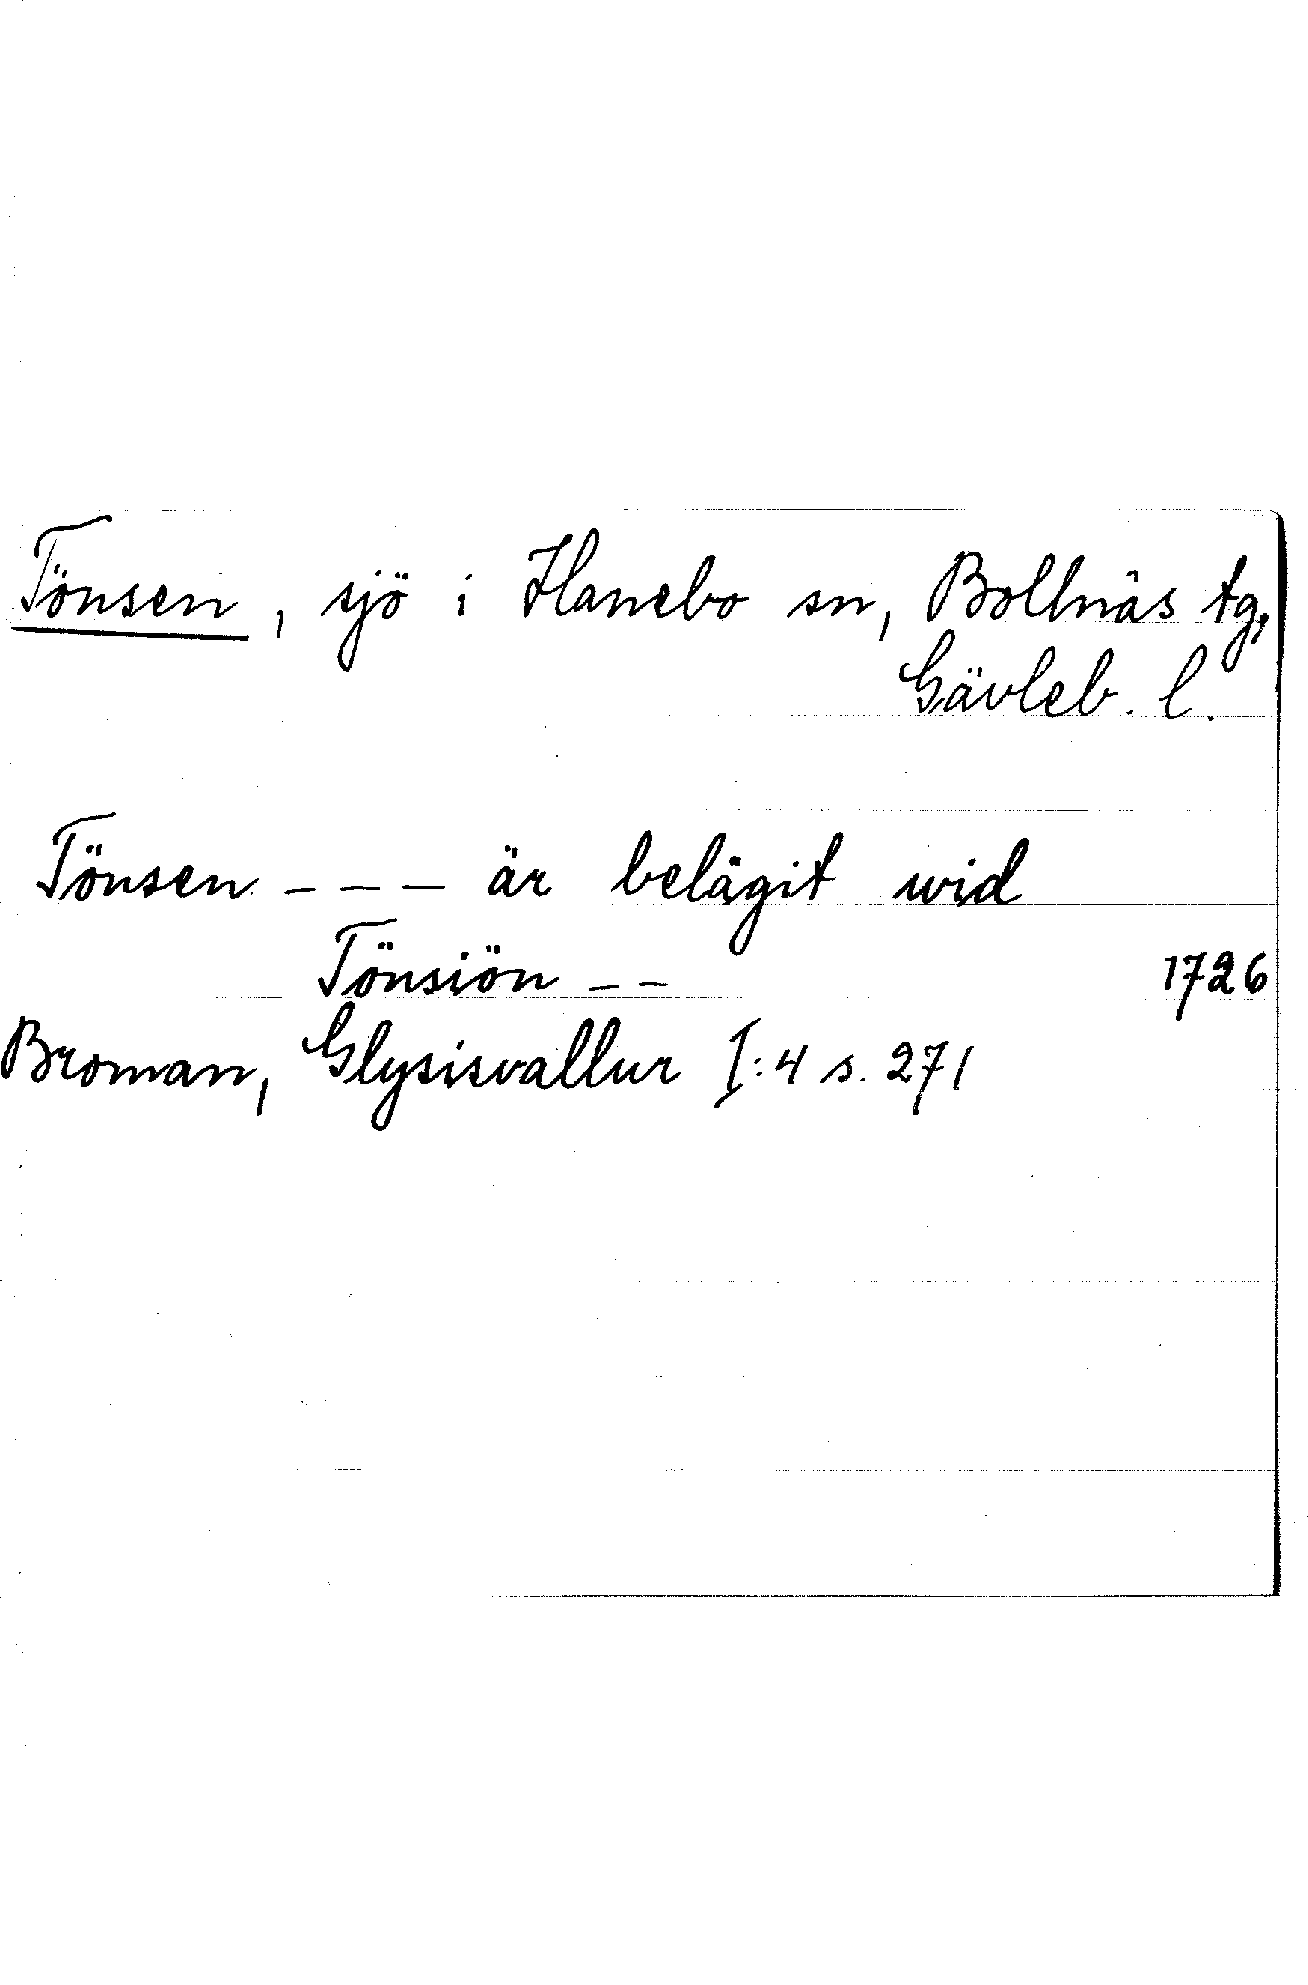 Tönsen, sjö i Hanebo sn, Bollnäs tg,
Gävleb. l.
Tönsen --- är belägit wid
Tönsiön -- 1726
Broman, Glysisvallur I:4 s. 271